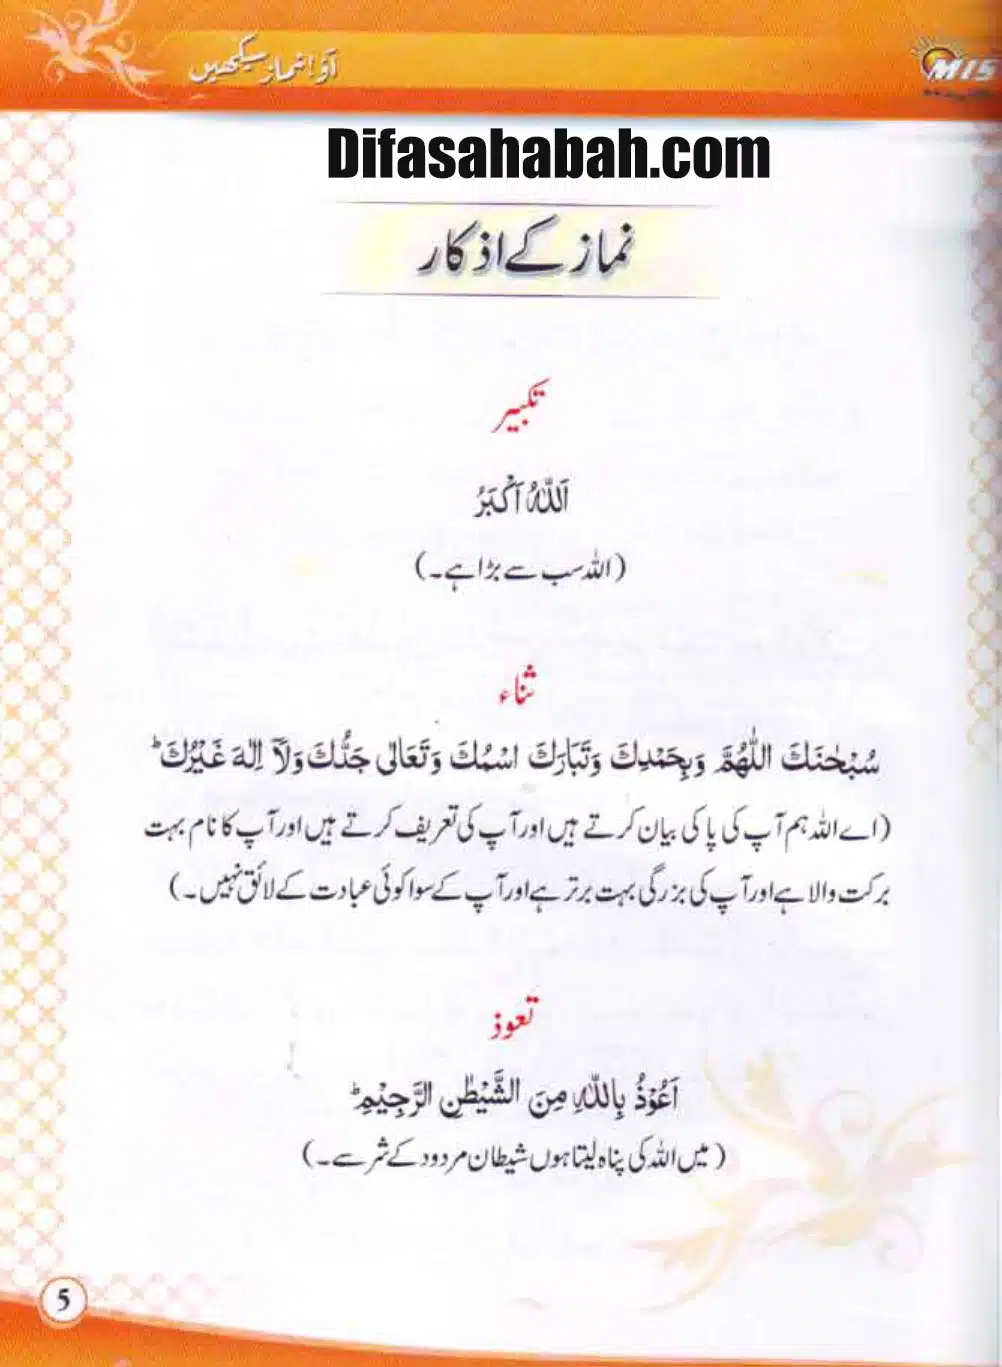 آؤ! نماز سیکھیں
MIS
Difasahabah.com
نماز کے اذکار
تکبیر
اَللّٰہُ اَکْبَرُ
(اللہ سب سے بڑا ہے۔)
ثناء
سُبْحٰنَکَ اللّٰھُمَّ وَبِحَمْدِکَ وَتَبَارَکَ اسْمُکَ وَتَعَالٰی جَدُّکَ وَلَآ اِلٰہَ غَیْرُکَ ؕ
(اے اللہ ہم آپ کی پاکی بیان کرتے ہیں اور آپ کی تعریف کرتے ہیں اور آپ کا نام بہت
برکت والا ہے اور آپ کی بزرگی بہت برتر ہے اور آپ کے سوا کوئی عبادت کے لائق نہیں۔)
تعوذ
اَعُوْذُ بِاللّٰہِ مِنَ الشَّیْطٰنِ الرَّجِیْمِ ؕ
(میں اللہ کی پناہ لیتا ہوں شیطان مردود کے شر سے۔)
5